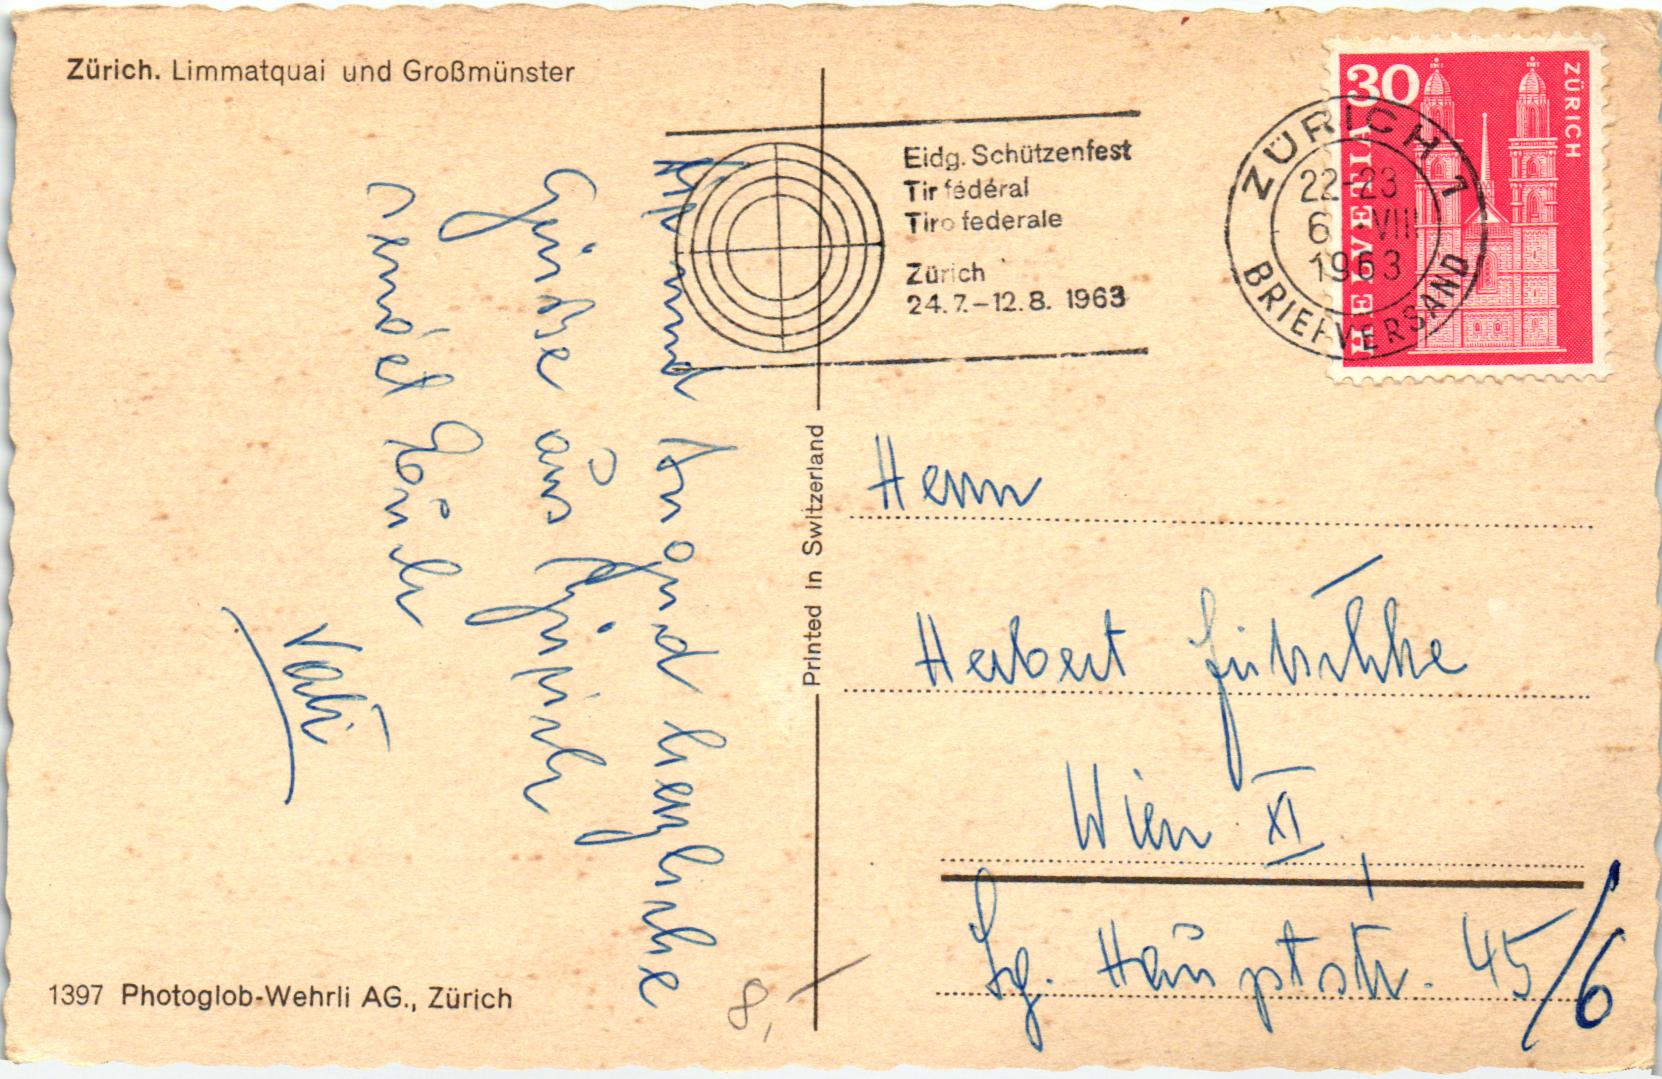 Zürich. Limmatquai und Großmünster
Eidg. Schützenfest
Tir fédéral
Tiro federale
Zürich
24.7.–12.8. 1963
30
HELVETIA
ZÜRICH
ZÜRICH 1
22-23
6.-VIII
1963
BRIEFVERSAND
und herzliche
Grüße aus Zürich
sendet Euch
Vati
Printed in Switzerland
Herrn
Herbert
Wien XI,
Sg. Hauptstr. 45/6
1397 Photoglob-Wehrli AG., Zürich
8,-